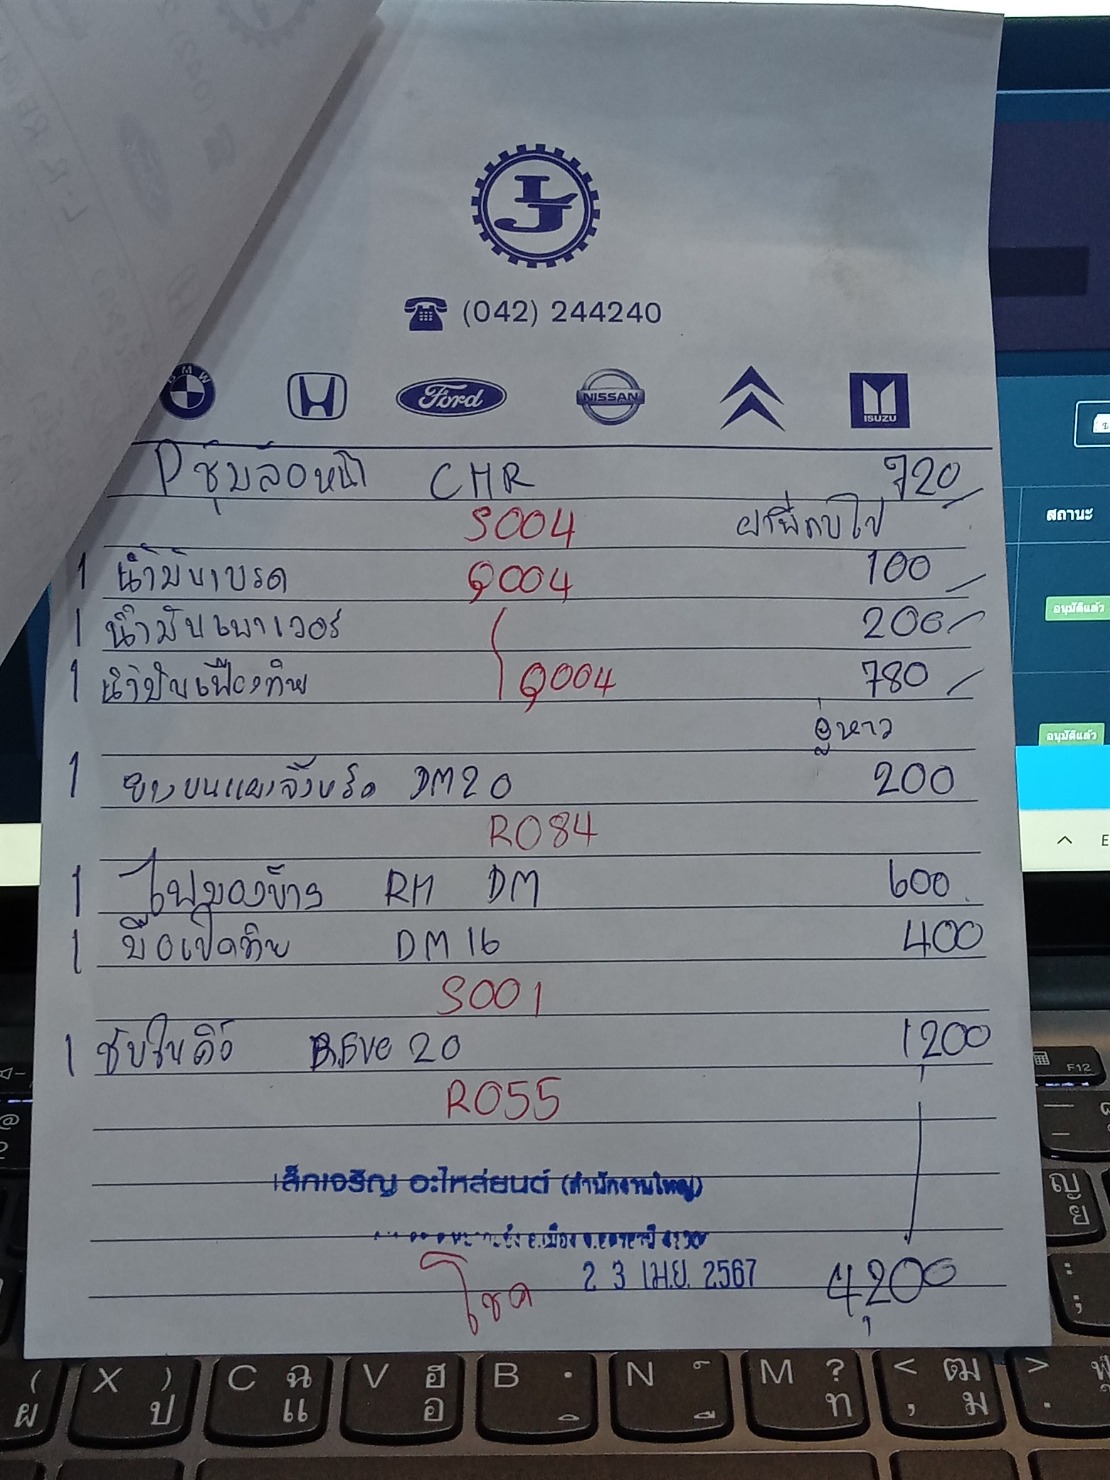 LJ
(042) 244240
BMW Ford NISSAN ISUZU
P ชุบล้อหน้า CHR 720
S004
สถานะ
1 น้ำมันเบรค Q004 100
อนุมัติแล้ว
1 น้ำมันเพาเวอร์ 200
1 น้ำมันเฟืองท้าย Q004 780
อู่หาว
อนุมัติแล้ว
1 DM20 200
R084
1 ไฟมองข้าง RH DM 600
1 มือเปิดท้าย DM16 400
S001
1 20 1200
R055
เล็กเจริญ อะไหล่ยนต์ (สำนักงานใหญ่)
อ.เมือง จ.อุดรธานี
2 3 เม.ย. 2567
โชค 4,200
F12
X ) ป C ฉ แ V ฮ อ B N M ? ท < , ฒ ม > .